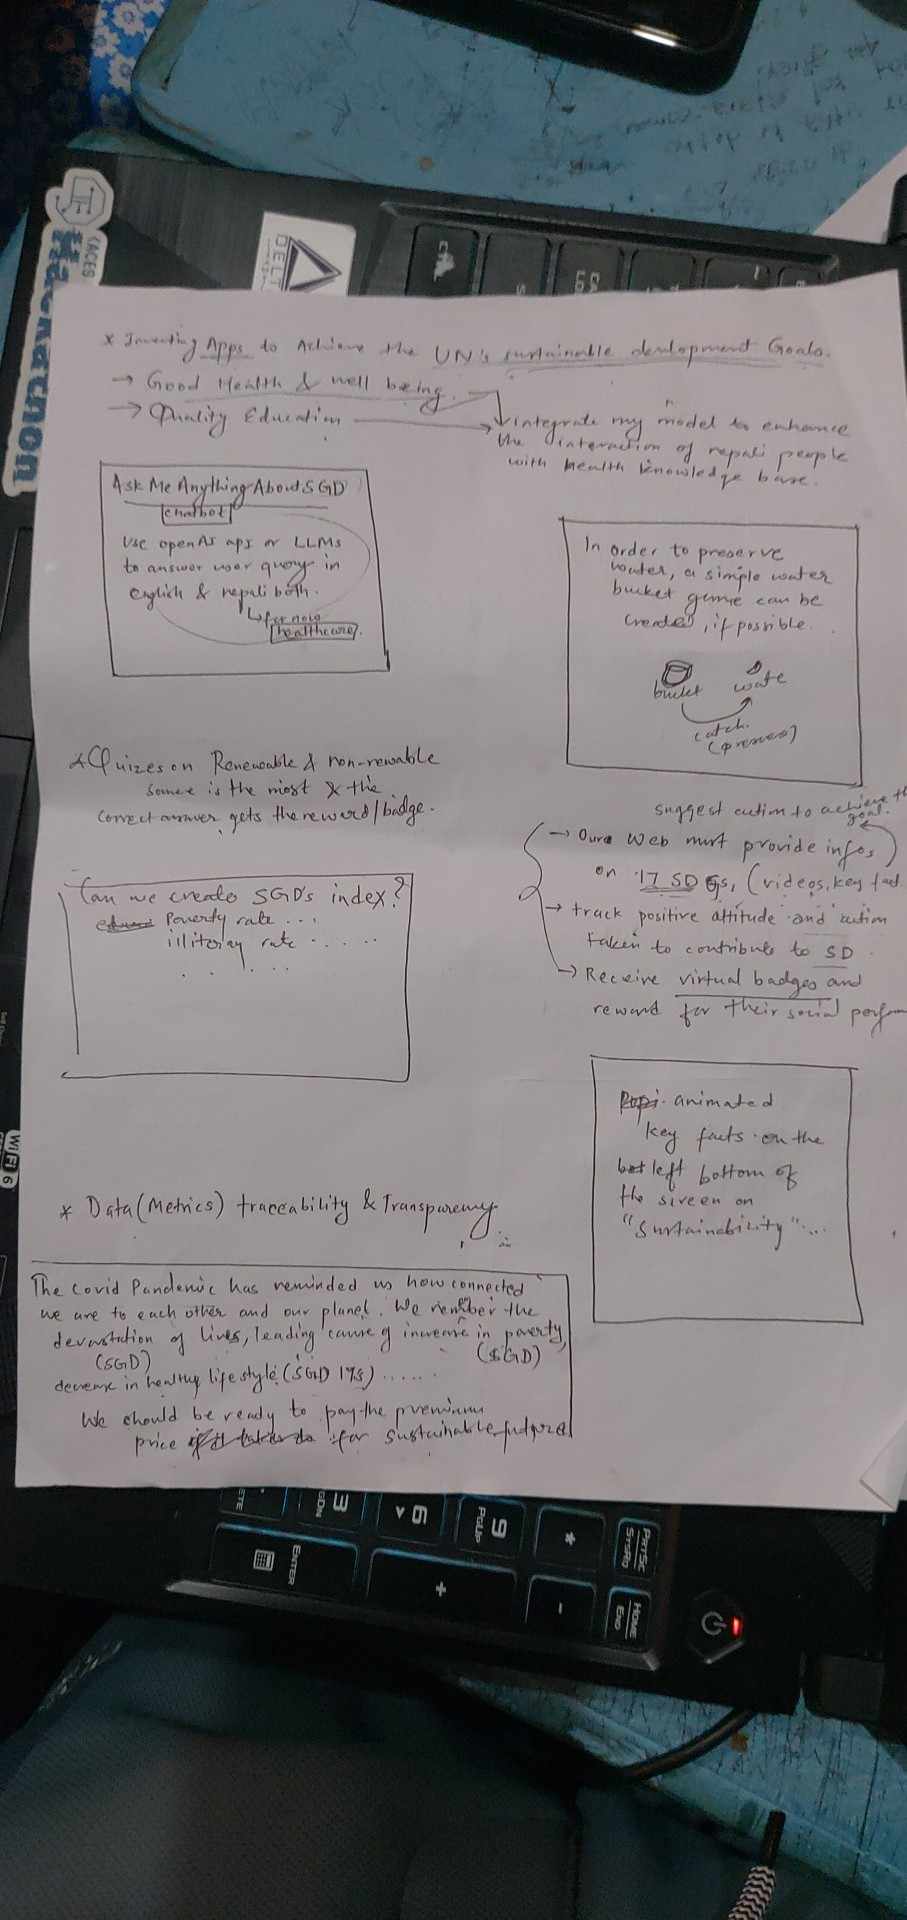 * Inventing Apps to Achieve the UN's sustainable development Goals.
→ Good Health & well being.
→ Quality Education
integrate my model to enhance
the interaction of nepali people
with health knowledge base.
Ask Me Anything About SGD
chatbot
Use openAI api or LLMs
to answer user query in
english & nepali both.
↳ for now
healthcare.
In order to preserve
water, a simple water
bucket game can be
created, if possible.
bucket wate
catch.
(preserve)
* Quizes on Renewable & non-rewable
source is the most & the
correct answer gets the reword/badge.
suggest action to achieve th
goal.
→ Oura Web must provide infos
on '17 SDGs, (videos, key fact
→ track positive attitude and action
taken to contribute to SD.
→ Receive virtual badges and
reward for their social perform
Can we create SGD's index?
Poverty rate ...
illitoray rate .....
.....
animated
key facts on the
left bottom of
the sireen on
"Sustainability"...
* Data (Metrics) traceability & Transparency
The Covid Pandemic has reminded us how connected
we are to each other and our planet. We remember the
devastation of lives, leading cause of increase in poverty,
(SGD) (SGD)
decrease in healthy life style (SGD 17s) ......
We should be ready to pay the premium
price for sustainable future
Hackathon
ACES
DELT
WiFi 6
CAPS
LO
3
PGDN
6
9
PgUp
*
PRTSC
SYSRQ
ENTER
+
-
HOME
END